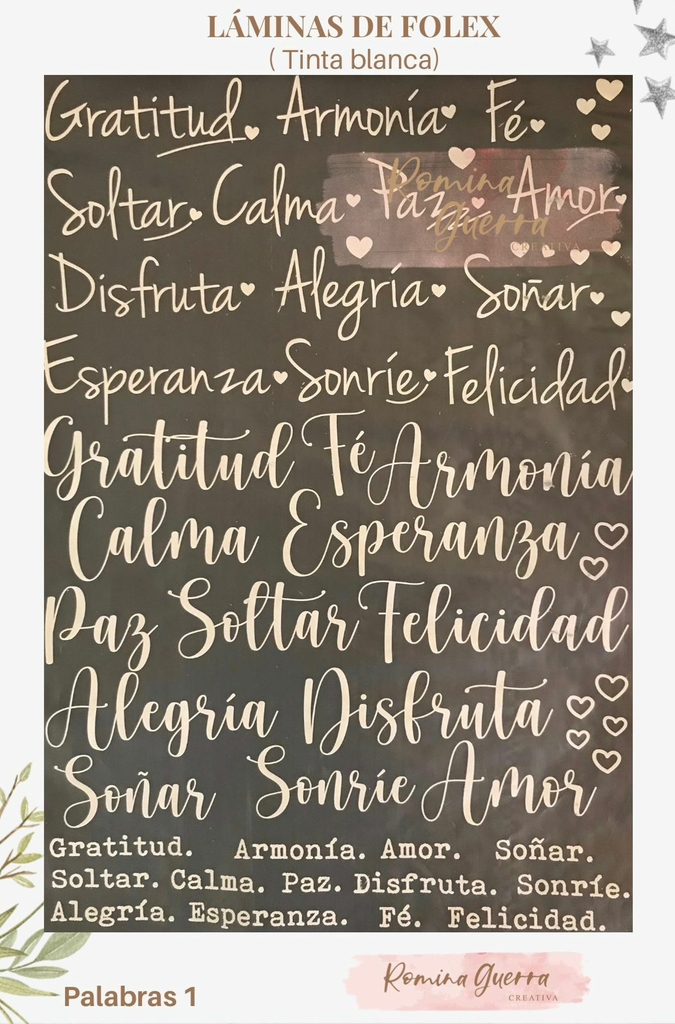 LÁMINAS DE FOLEX
( Tinta blanca)
Gratitud Armonía Fé
Soltar Calma Paz Amor
Romina
Guerra
CREATIVA
Disfruta Alegría Soñar
Esperanza Sonríe Felicidad
Gratitud Fé Armonía
Calma Esperanza
Paz Soltar Felicidad
Alegría Disfruta
Soñar Sonríe Amor
Gratitud. Armonía. Amor. Soñar.
Soltar. Calma. Paz. Disfruta. Sonríe.
Alegría. Esperanza. Fé. Felicidad.
Palabras 1
Romina Guerra
CREATIVA